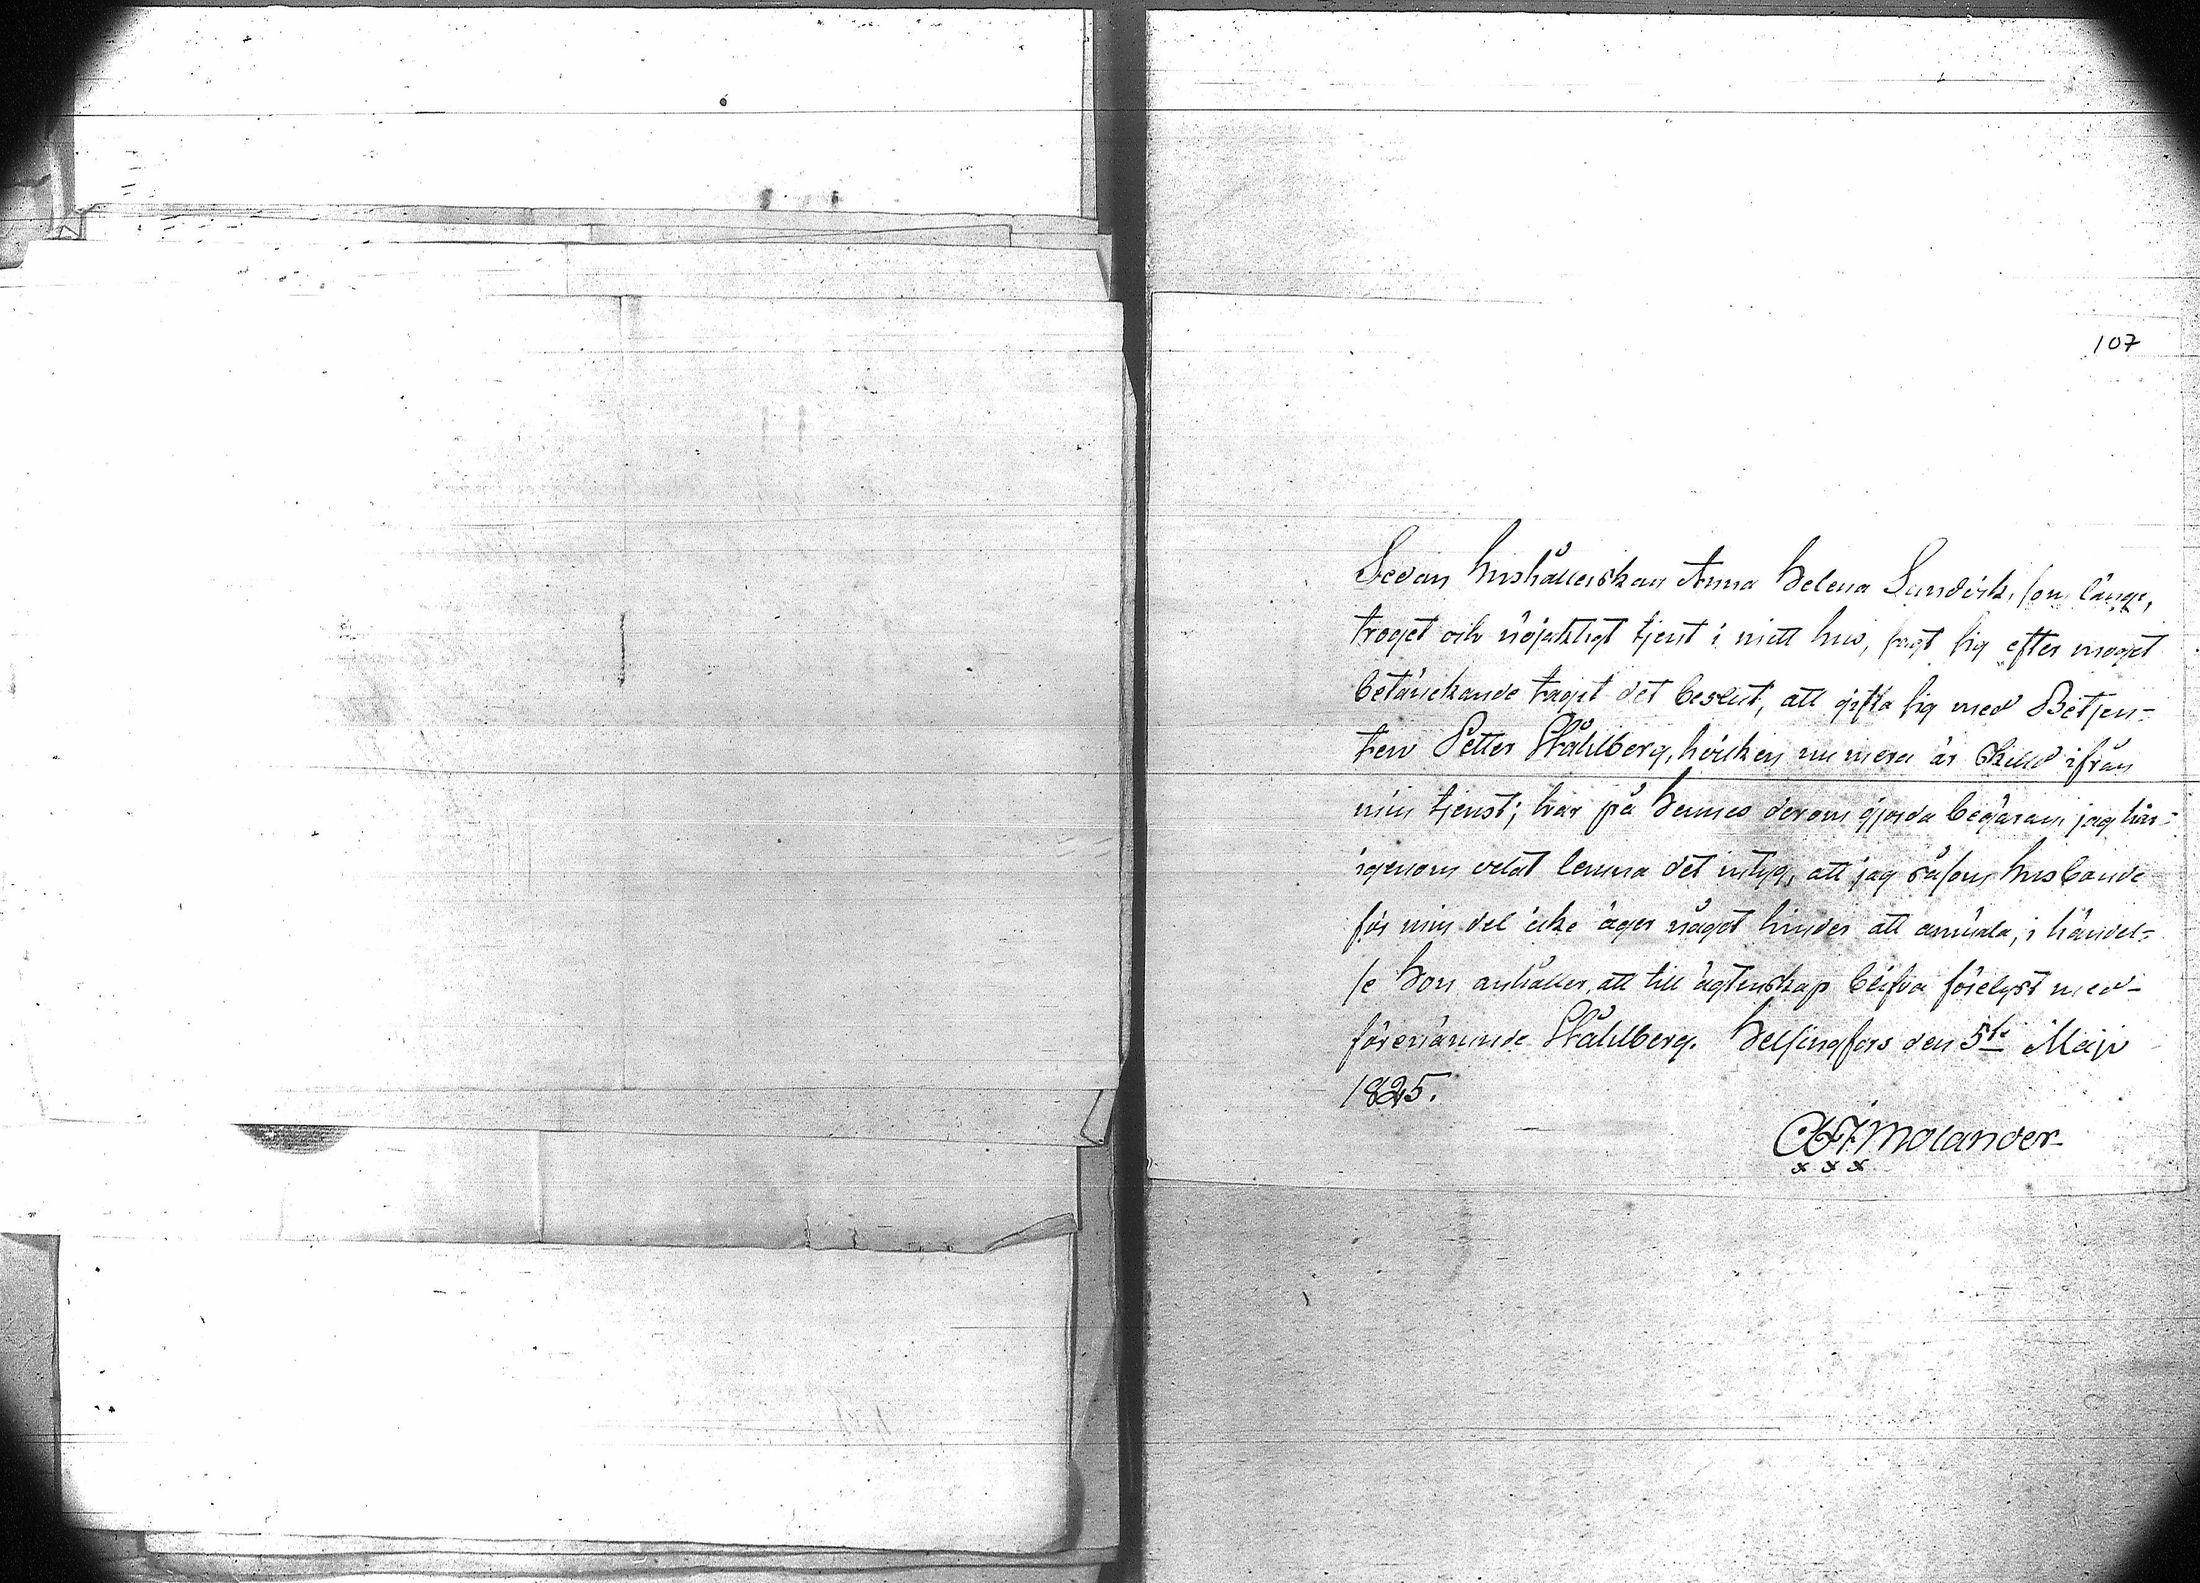 107
Sedan hushållerskan Anna Helena Sundvik, som länge,
troget och nöjaktigt tjent i mitt hus, sagt sig efter moget
betänckande tagit det beslut, att gifta sig med Betjen-
ten Petter Ståhlberg, hvilken numera är skild ifrån
min tjenst; har på Hennes derom gjorda begäran jag här-
igenom velat lemna det intyg, att jag såsom husbonde
för min del icke äger något hinder att anmäla, i händel-
se Hon anhåller, att till ägtenskap blifva förelyst med
förenämnde Ståhlberg. Helsingfors den 5te Maji
1825.
Molander